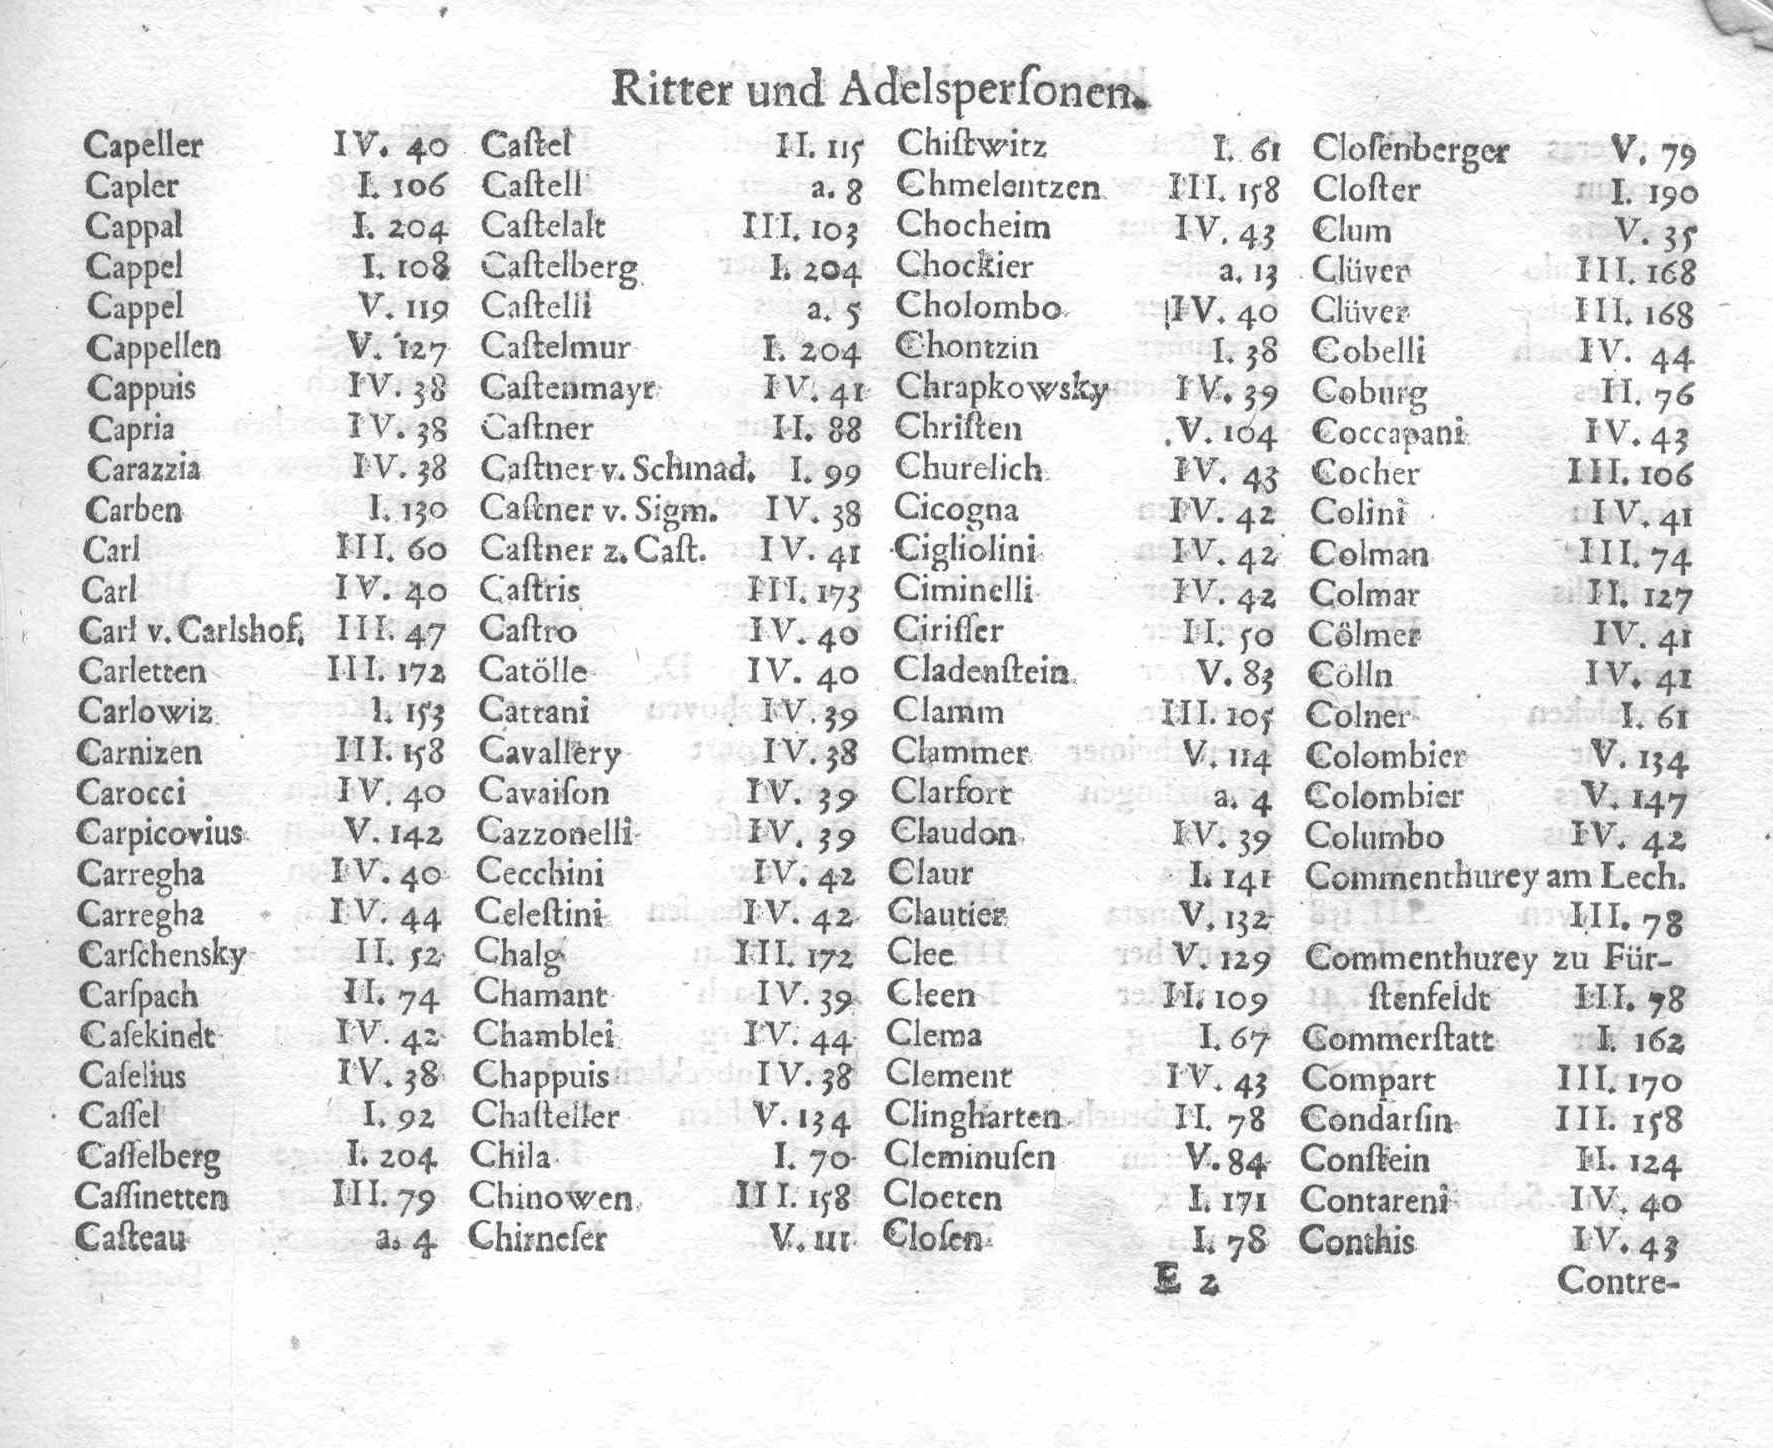 Ritter und Adelsperſonen.
Capeller IV. 40
Capler I. 106
Cappal I. 204
Cappel I. 108
Cappel V. 119
Cappellen V. 127
Cappuis IV. 38
Capria IV. 38
Carazzia IV. 38
Carben I. 130
Carl III. 60
Carl IV. 40
Carl v. Carlshof. III. 47
Carletten III. 172
Carlowiz I. 153
Carnizen III. 158
Carocci IV. 40
Carpicovius V. 142
Carregha IV. 40
Carregha IV. 44
Carſchensky II. 52
Carſpach II. 74
Caſekindt IV. 42
Caſelius IV. 38
Caſſel I. 92
Caſſelberg I. 204
Caſſinetten III. 79
Caſteau a. 4
Caſtel II. 115
Caſtell a. 8
Caſtelalt III. 103
Caſtelberg I. 204
Caſtelli a. 5
Caſtelmur I. 204
Caſtenmayr IV. 41
Caſtner II. 88
Caſtner v. Schmad. I. 99
Caſtner v. Sigm. IV. 38
Caſtner z. Caſt. IV. 41
Caſtris III. 173
Caſtro IV. 40
Catölle IV. 40
Cattani IV. 39
Cavallery IV. 38
Cavaiſon IV. 39
Cazzonelli IV. 39
Cecchini IV. 42
Celeſtini IV. 42
Chalg III. 172
Chamant IV. 39
Chamblei IV. 44
Chappuis IV. 38
Chaſteller V. 134
Chila I. 70
Chinowen III. 158
Chirneſer V. 111
Chiſtwitz I. 61
Chmelentzen III. 158
Chocheim IV. 43
Chockier a. 13
Cholombo IV. 40
Chontzin I. 38
Chrapkowsky IV. 39
Chriſten V. 104
Churelich IV. 43
Cicogna IV. 42
Cigliolini IV. 42
Ciminelli IV. 42
Ciriſſer II. 50
Cladenſtein V. 83
Clamm III. 105
Clammer V. 114
Clarfort a. 4
Claudon IV. 39
Claur I. 141
Clautier V. 132
Clee V. 129
Cleen II. 109
Clema I. 67
Clement IV. 43
Clingharten II. 78
Cleminuſen V. 84
Cloeten I. 171
Cloſen I. 78
Cloſenberger V. 79
Cloſter I. 190
Clum V. 35
Clüver III. 168
Clüver III. 168
Cobelli IV. 44
Coburg II. 76
Coccapani IV. 43
Cocher III. 106
Colini IV. 41
Colman III. 74
Colmar II. 127
Cölmer IV. 41
Cölln IV. 41
Colner I. 61
Colombier V. 134
Colombier V. 147
Columbo IV. 42
Commenthurey am Lech.
III. 78
Commenthurey zu Für-
ſtenfeldt III. 78
Commerſtatt I. 162
Compart III. 170
Condarſin III. 158
Conſtein II. 124
Contareni IV. 40
Conthis IV. 43
E 2
Contre-